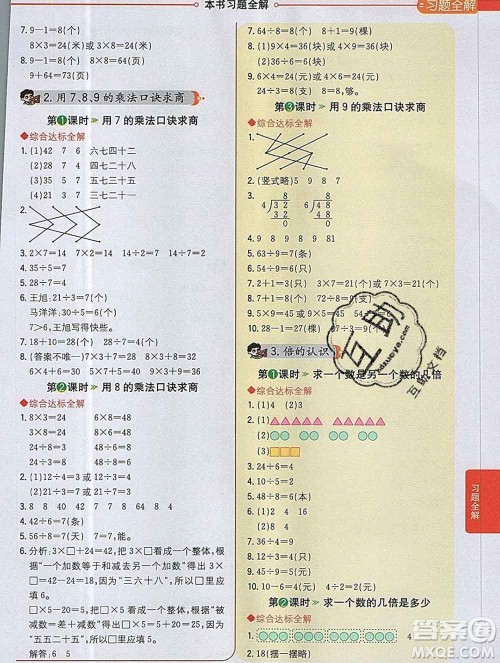 本书习题全解
习题全解
7. 9－1＝8(个)
8×3＝24(米)或3×8＝24(米)
8. 9－1＝8(页) 8×8＝64(页)
9＋64＝73(页)
2. 用7、8、9的乘法口诀求商
第1课时 用7的乘法口诀求商
综合达标全解
1. (1)42 7 6 六七四十二
(2)28 7 4 四七二十八
(3)35 5 7 五七三十五
(4)21 3 7 三七二十一
2.
3. 2×7＝14 7×2＝14 14÷2＝7 14÷7＝2
4. 35÷5＝7
5. 21÷3＝7
6. 王旭:21÷3＝7(个)
马洋洋:30÷5＝6(个)
7＞6,王旭写得快些。
7. 18÷2＝9 30÷5＝6
8. (答案不唯一)7×3＝21 5×7＝35
6×4＝24 9×5＝45
第2课时 用8的乘法口诀求商
综合达标全解
1. 8×3＝24 6×8＝48
3×8＝24 8×6＝48
24÷3＝8 48÷6＝8
24÷8＝3 48÷8＝6
2. (1)12÷4＝3 或 12÷3＝4
(2)24÷6＝4 或 24÷4＝6
3. 8 8 4 4 7 8 8 7
4. 48÷8＝6(元)
5. 42÷6＝7(天) 7＝7 能。
6. 分析:3×□＋24＝42,把3×□看成一个整体,根据“一个加数等于和减去另一个加数”得出3×□＝42－24＝18,因为“三六十八”,所以□里应填6。
□×□＋5＝30,把□×□看成一个整体,根据“一个加数等于和减去另一个加数”得出□×□＝30－5＝25,因为“五五二十五”,所以□里应填5。
解答:6 5
7. 64÷8＝8(个) 8÷1＝8(棵)
8. (1)4×9＝36(块)或9×4＝36(块)
(2)36÷6＝6(块)
9. 6×4＝24(元)或4×6＝24(元)
24÷3＝8(支) 8＝8 够。
第3课时 用9的乘法口诀求商
综合达标全解
1.
2. (竖式略)5 9 8 7
3.
4. 9 8 9 8 81
5. 63÷9＝7(条)
6. 54÷9＝6(元)
7. (1)21÷3＝7(盆) 3×7＝21(盆)或7×3＝21(盆)
8. 8×9＝72(个) 72÷8＝9(支)
9. 9×5＝45或5×9＝45 54÷9＝6
10. 28－1＝27(棵) 27÷9＝3(棵)
3. 倍的认识
第1课时 求一个数是另一个数的几倍
综合达标全解
1. (1)4 (2)3
2. (1)
(2)
(3)
3. 24÷6＝4
4. 10÷5＝2
5. 48÷8＝6(倍)
6. 54÷9＝6
7. 32÷8＝4
8. 12÷3＝4
9. 24÷3＝8
10. 10－6＝4(元) 4÷4＝1(元)
第2课时 求一个数的几倍是多少
综合达标全解
1. 4
2. 18(摆一摆略)
互助
互助文档
答案圈
MXQE.COM
习题全解